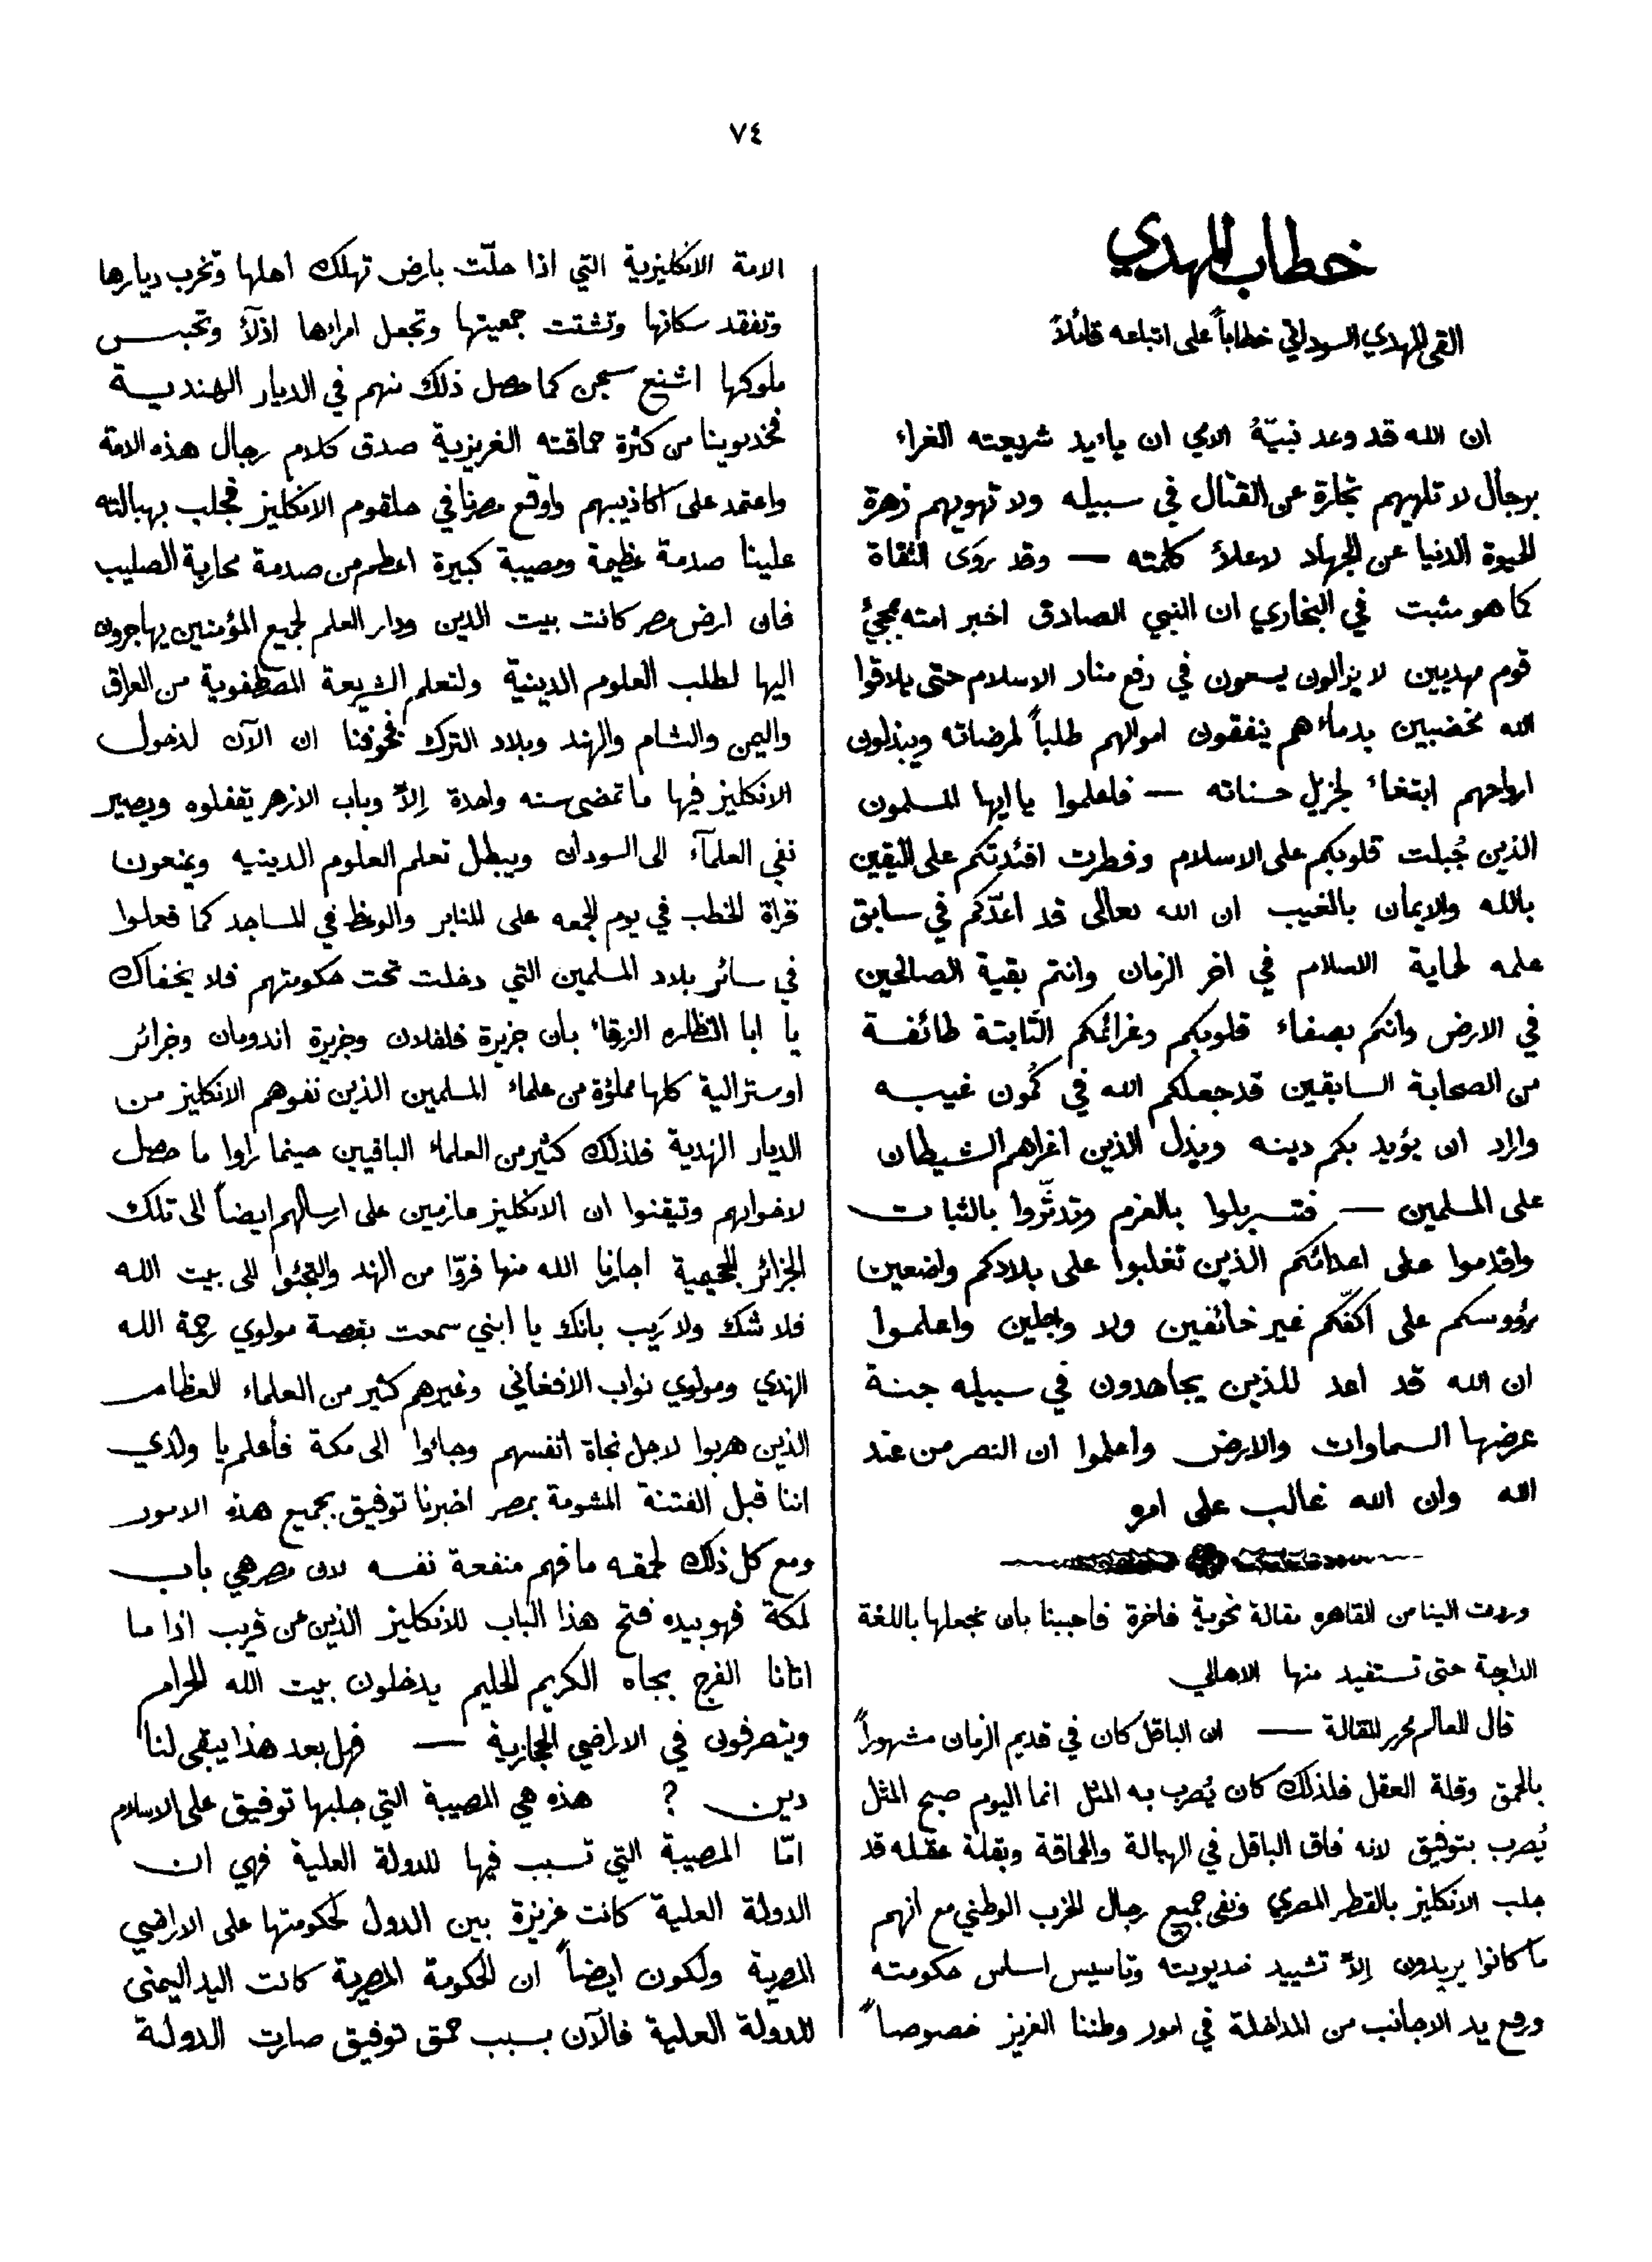 ٧٤
خطاب المهدي
القى المهدي السوداني خطاباً على اتباعه قائلاً
ان الله قد وعد نبيّهُ الامي ان يائيد شريعته الغراء
برجال لا تلهيهم تجارة عن القتال في سبيله ولا تهويهم زهرة
الحيوة الدنيا عن الجهاد لاعلاً كلمته — وقد روَى الثقاة
كما هو مثبت في البخاري ان النبي الصادق اخبر امته بمجئ
قوم مهديين لا يزالون يسعون في رفع منار الاسلام حتى يلاقوا
الله مخضبين بدماءهم ينفقون اموالهم طلباً لمرضاته ويبذلون
ارواحهم ابتغاء لجزيل حسناته — فاعلموا يا ايها المسلمون
الذين جُبلت قلوبكم على الاسلام وفطرت افئدتكم على اليقين
بالله والايمان بالغيب ان الله تعالى قد اعدّكم في سابق
علمه لحماية الاسلام في اخر الزمان وانتم بقية الصالحين
في الارض وانكم بصفاء قلوبكم وعزائمكم الثابتة طائفة
من الصحابة السابقين قد جعلكم الله في كمُون غيبه
واراد ان يؤيد بكم دينه ويذل الذين اغراهم الشيطان
على المسلمين — فتسربلوا بالعزم وتدثّروا بالثبات
واقدموا على اعدائكم الذين تغلبوا على بلادكم واضعين
رؤوسكم على اكفّكم غير خائفين ولا وجلين واعلموا
ان الله قد اعد للذين يجاهدون في سبيله جنة
عرضها السماوات والارض واعلموا ان النصر من عند
الله وان الله غالب على امره
وردت الينا من القاهره مقالة نحوية فاخرة فاحببنا بان نجعلها باللغة
الدارجة حتى تستفيد منها الاهالي
قال العالم محرر المقالة — ان الباقل كان في قديم الزمان مشهوراً
بالحمق وقلة العقل فلذلك كان يُضرب به المثل انما اليوم صبح المثل
يُضرب بتوفيق لانه فاق الباقل في الهبالة والحماقة وبقلة عقله قد
جلب الانكليز بالقطر المصري ونفى جميع رجال الحزب الوطني مع انهم
ما كانوا يريدون إلاّ تشييد خديويته وتاسيس اساس حكومته
ورفع يد الاجانب من المداخلة في امور وطننا العزيز خصوصاً
الامة الانكليزية التي اذا حلّت بارض تهلك اهلها وتخرب ديارها
وتفقد سكانها وتشتت جمعيتها وتجعل امراءها اذلّاً وتحبس
ملوكها اشنع سجن كما حصل ذلك منهم في الديار الهندية
فخديوينا من كثرة حماقته الغريزية صدق كلام رجال هذه الامة
واعتمد على اكاذيبهم واوقع مصرنا في حلقوم الانكليز فجلب بهبالته
علينا صدمة عظيمة ومصيبة كبيرة اعظم من صدمة محاربة الصليب
فان ارض مصر كانت بيت الدين ودار العلم لجميع المؤمنين يهاجرون
اليها لطلب العلوم الدينية ولتعلم الشريعة المصطفوية من العراق
واليمن والشام والهند وبلاد الترك فخوفنا ان الآن لدخول
الانكليز فيها ما تمضى سنه واحدة إلاّ وباب الازهر يقفلوه ويصير
نفي العلمآء الى السودان ويبطل تعلم العلوم الدينيه ويمنعون
قراة الخطب في يوم الجمعه على المنابر والوعظ في المساجد كما فعلوا
في سائر بلاد المسلمين التي دخلت تحت حكومتهم فلا يخفاك
يا ابا النظاره الزرقاء بان جزيرة فلفلان وجزيرة اندومان وجزائر
اوستراالية كلها مملؤة من علماء المسلمين الذين نفوهم الانكليز من
الديار الهندية فلذلك كثير من العلماء الباقيين حينما راوا ما حصل
لاخوانهم وتيقنوا ان الانكليز عازمين على ارسالهم ايضاً الى تلك
الجزائر الجحيمية اجارنا الله منها فرّوا من الهند والتجئوا الى بيت الله
فلا شك ولا رَيب بانك يا ابني سمعت بقصة مولوي رحمة الله
الهندي ومولوي نواب الافغاني وغيرهم كثير من العلماء العظام
الذين هربوا لاجل نجاة انفسهم وجاءوا الى مكة فأعلم يا ولدي
اننا قبل الفتنة المشومة بمصر اخبرنا توفيق بجميع هذه الامور
ومع كل ذلك لحمقه ما فهم منفعة نفسه لان مصر هي باب
لمكة فهو بيده فتح هذا الباب للانكليز الذين عن قريب اذا ما
اتانا الفرج بجاه الكريم الحليم يدخلون بيت الله الحرام
ويتصرفون في الاراضي الحجازية — فهل بعد هذا يبقى لنا
دين ? هذه هي المصيبة التي جلبها توفيق على الاسلام
امّا المصيبة التي تسبب فيها للدولة العلية فهي ان
الدولة العلية كانت عزيزة بين الدول لحكومتها على الاراضي
المصرية ولكون ايضاً ان الحكومة المصرية كانت اليد اليمنى
للدولة العلية فالآن بسبب حمق توفيق صارت الدولة